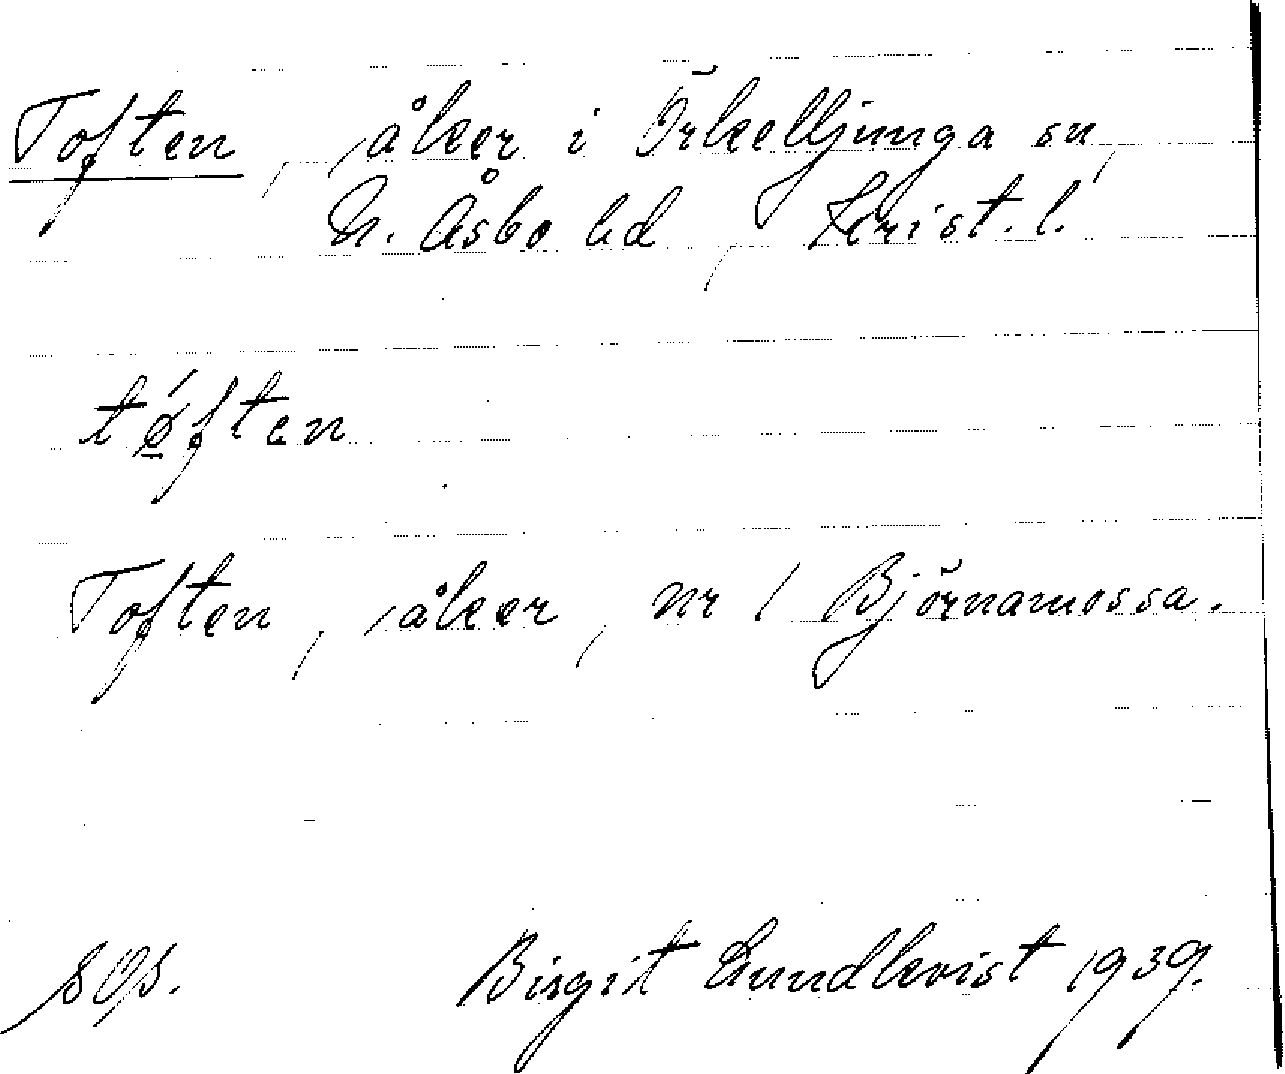 Toften, åker i Örkelljunga sn,
N. Åsbo hd, Krist. l.
tǿ̱ften
Toften, åker, nr 1 Björnamossa.
Birgit Lundkvist 1939.